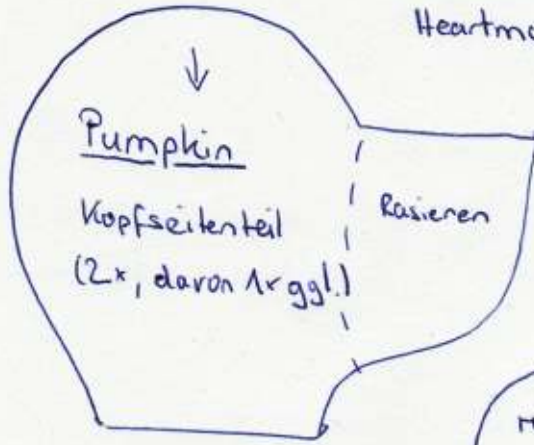 Pumpkin
Kopfseitenteil
(2x, davon 1x ggl.)
Rasieren